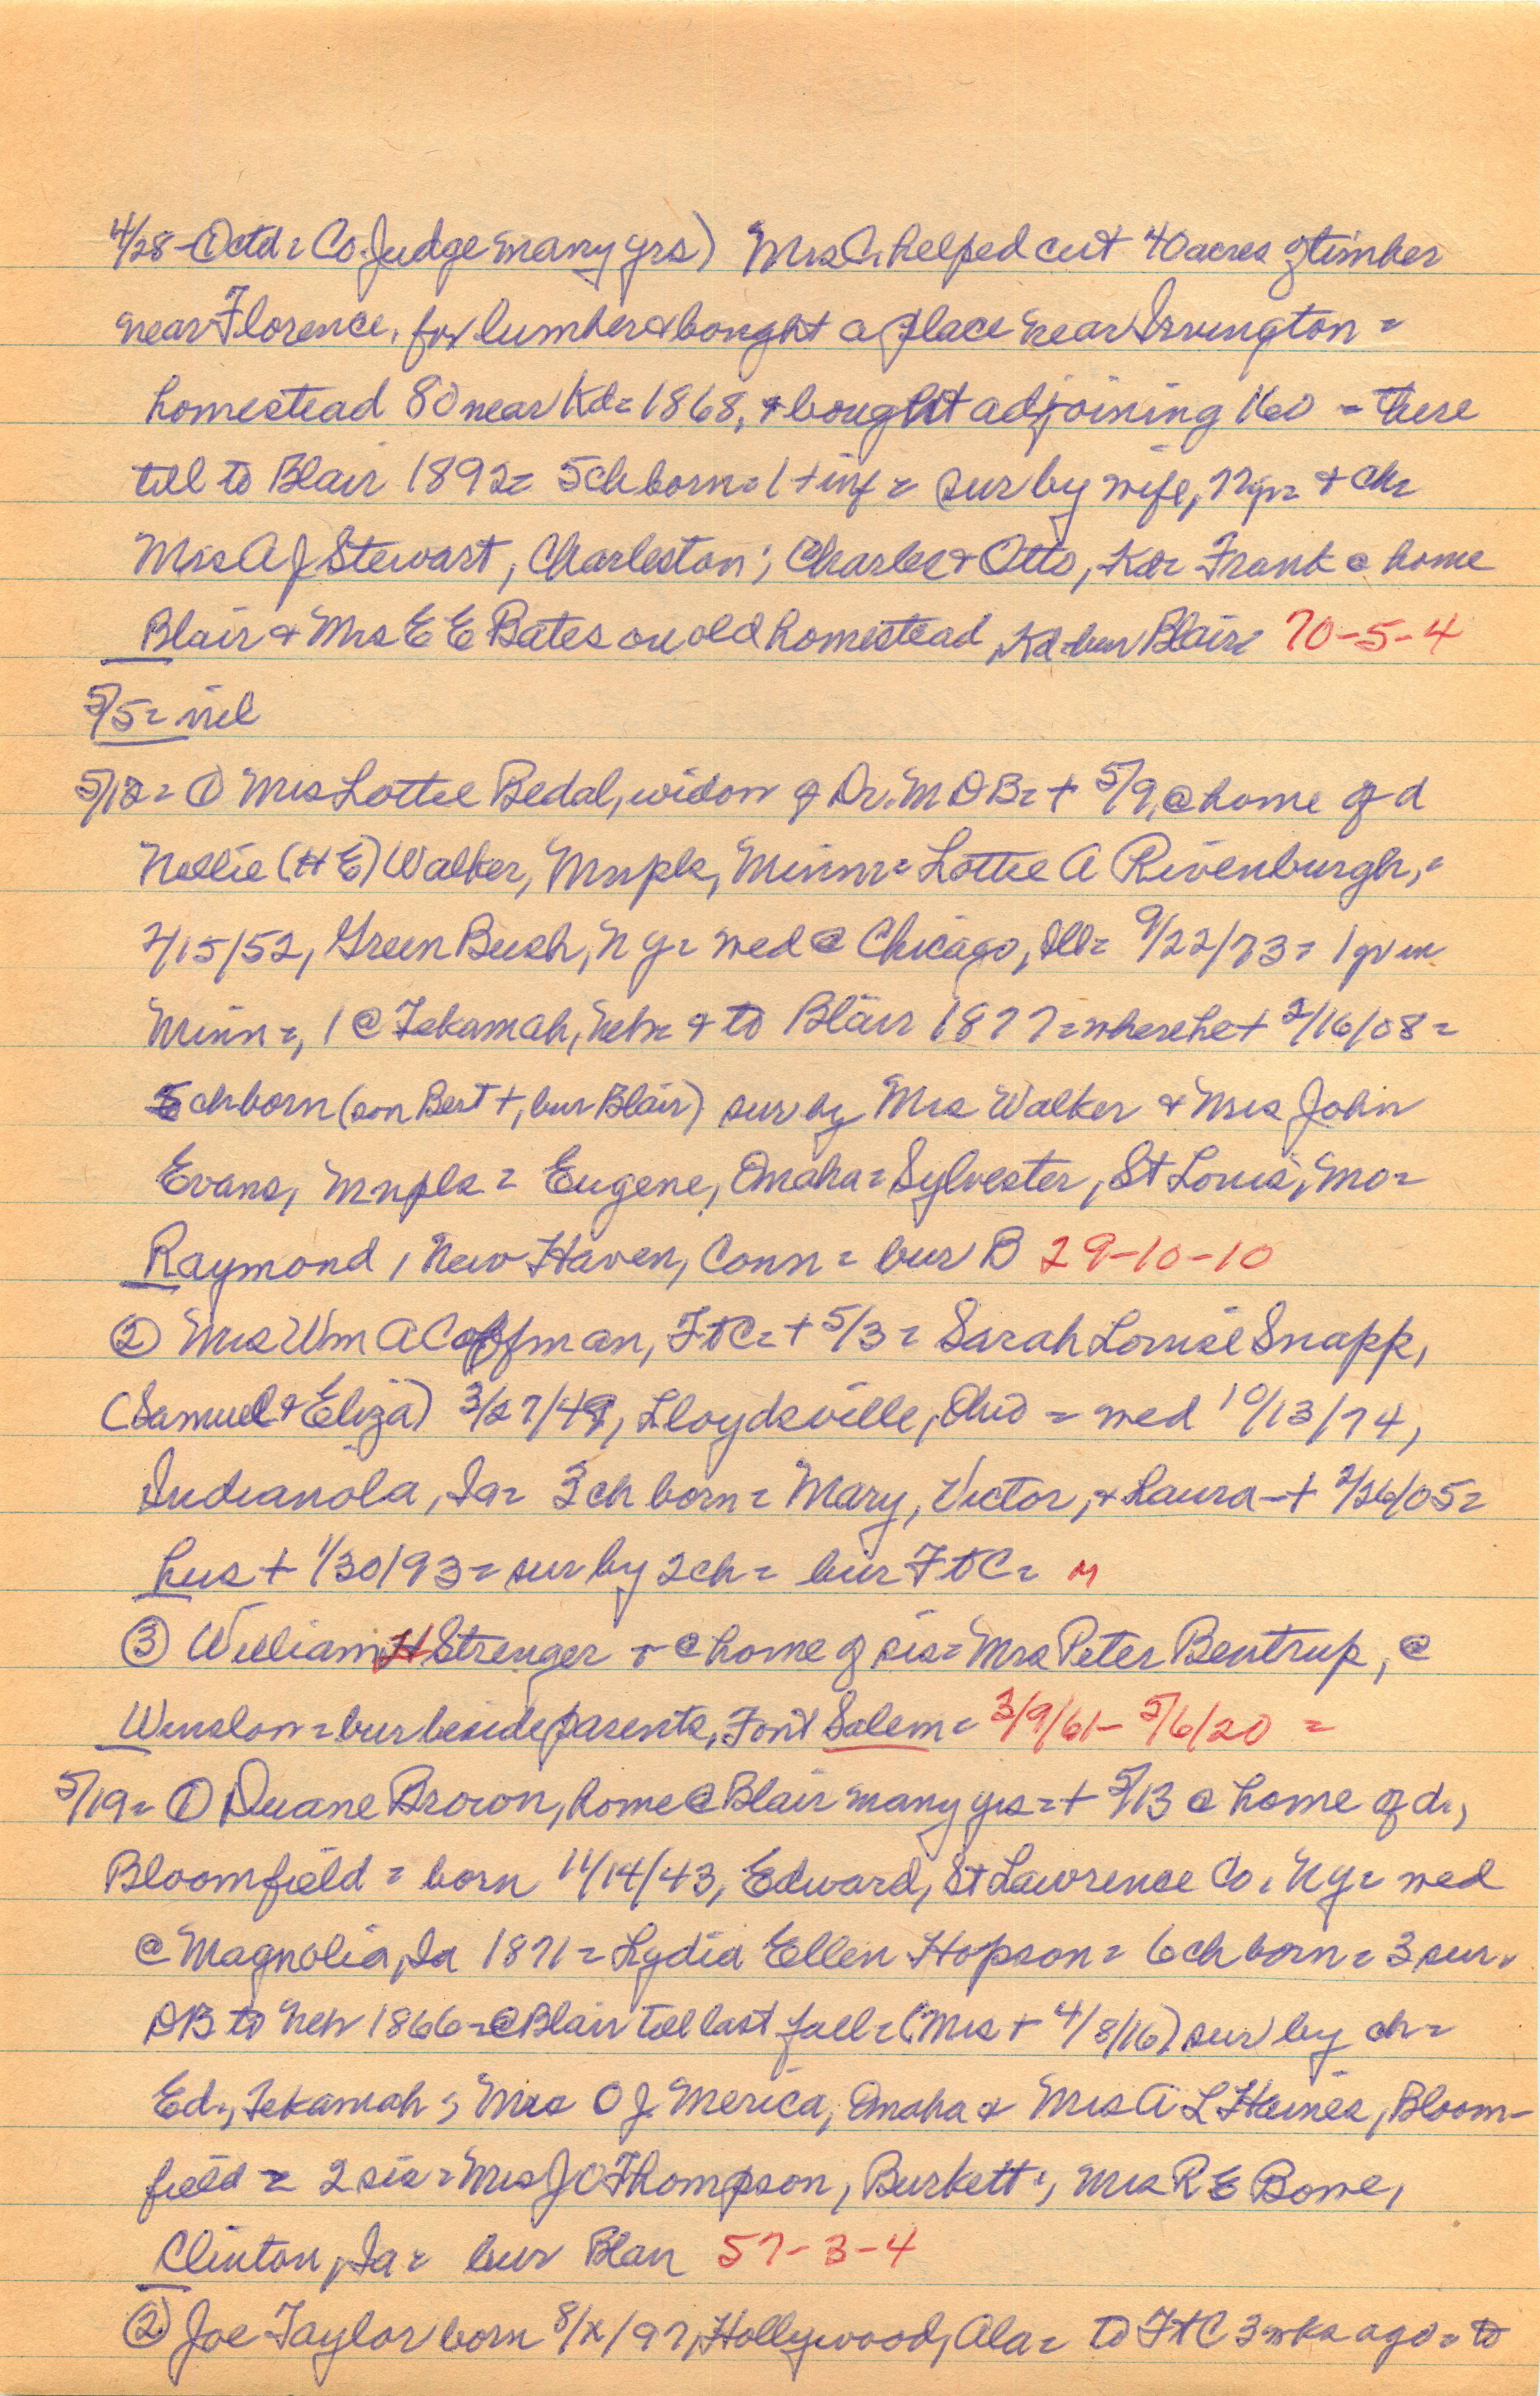 4/28 - Octd = Co. Judge many yrs) Mrs C. helped cut 40 acres of timber
near Florence, for lumber & bought a place near Irvington =
homestead 80 near Kd = 1868, & bought adjoining 160 = there
till to Blair 1892 = 5 ch born = 1 + inf = sur by wife, & ch =
Mrs A J Stewart, Charleston; Charles & Otto, Kd = Frank @ home
Blair & Mrs E E Bates on old homestead, Kd = bur Blair = 70-5-4
5/5 = nil
5/12 = ① Mrs Lottie Bedal, widow of Dr. M D B = + 5/9, @ home of d
Nellie (H E) Walker, Mnpls, Minn = Lottie A Rivenburgh, =
2/15/52, Green Bush, N Y = wed @ Chicago, Ill = 9/22/73 = 1 yr in
Minn =, 1 @ Tekamah, Neb = & to Blair 1877 = where he + 2/16/08 =
5 ch born (son Bert +, bur Blair) sur by Mrs Walker & Mrs John
Evans, Mnpls = Eugene, Omaha = Sylvester, St Louis, Mo =
Raymond, New Haven, Conn = bur B 29-10-10
② Mrs Wm A Coffman, Ft C = + 5/3 = Sarah Louise Snapp,
(Samuel & Eliza) 3/27/49, Lloydsville, Ohio = wed 10/13/74,
Indianola, Ia = 3 ch born = Mary, Victor, & Laura - + 2/26/05 =
hus + 1/30/93 = sur by 2 ch = bur Ft C = M
③ William H Strenger + @ home of sis = Mrs Peter Bentrup, @
Winslow = bur beside parents, Font Salem = 3/9/61 - 5/6/20 =
5/19 = ① Duane Brown, home @ Blair many yrs = + 5/13 @ home of d.,
Bloomfield = born 11/14/43, Edward, St Lawrence Co, N Y = wed
@ Magnolia, Ia 1871 = Lydia Ellen Hopson = 6 ch born = 3 sur.
D B to Neb 1866 = @ Blair till last fall = (Mrs + 4/8/16) sur by ch =
Ed., Tekamah; Mrs O J Merica, Omaha & Mrs A L Haines, Bloom-
field = 2 sis = Mrs J C Thompson, Burkett;, Mrs R E Bowe,
Clinton, Ia = bur Blair 57-3-4
② Joe Taylor born 8/x/97, Hollywood, Ala = to Ft C 3 wks ago = to